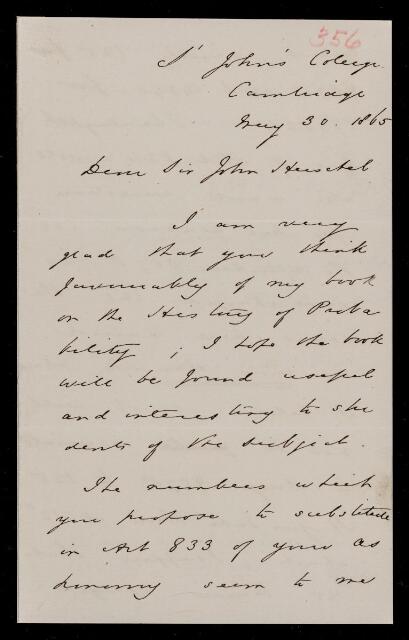 356
St John's College
Cambridge
May 30. 1865
Dear Sir John Herschel
I am very
glad that you think
favourably of my book
on the History of Proba
bility ; I hope the book
will be found useful
and interesting to stu
dents of the subject.
The numbers which
you propose to substitute
in Art 833 of your as
tronomy seem to me